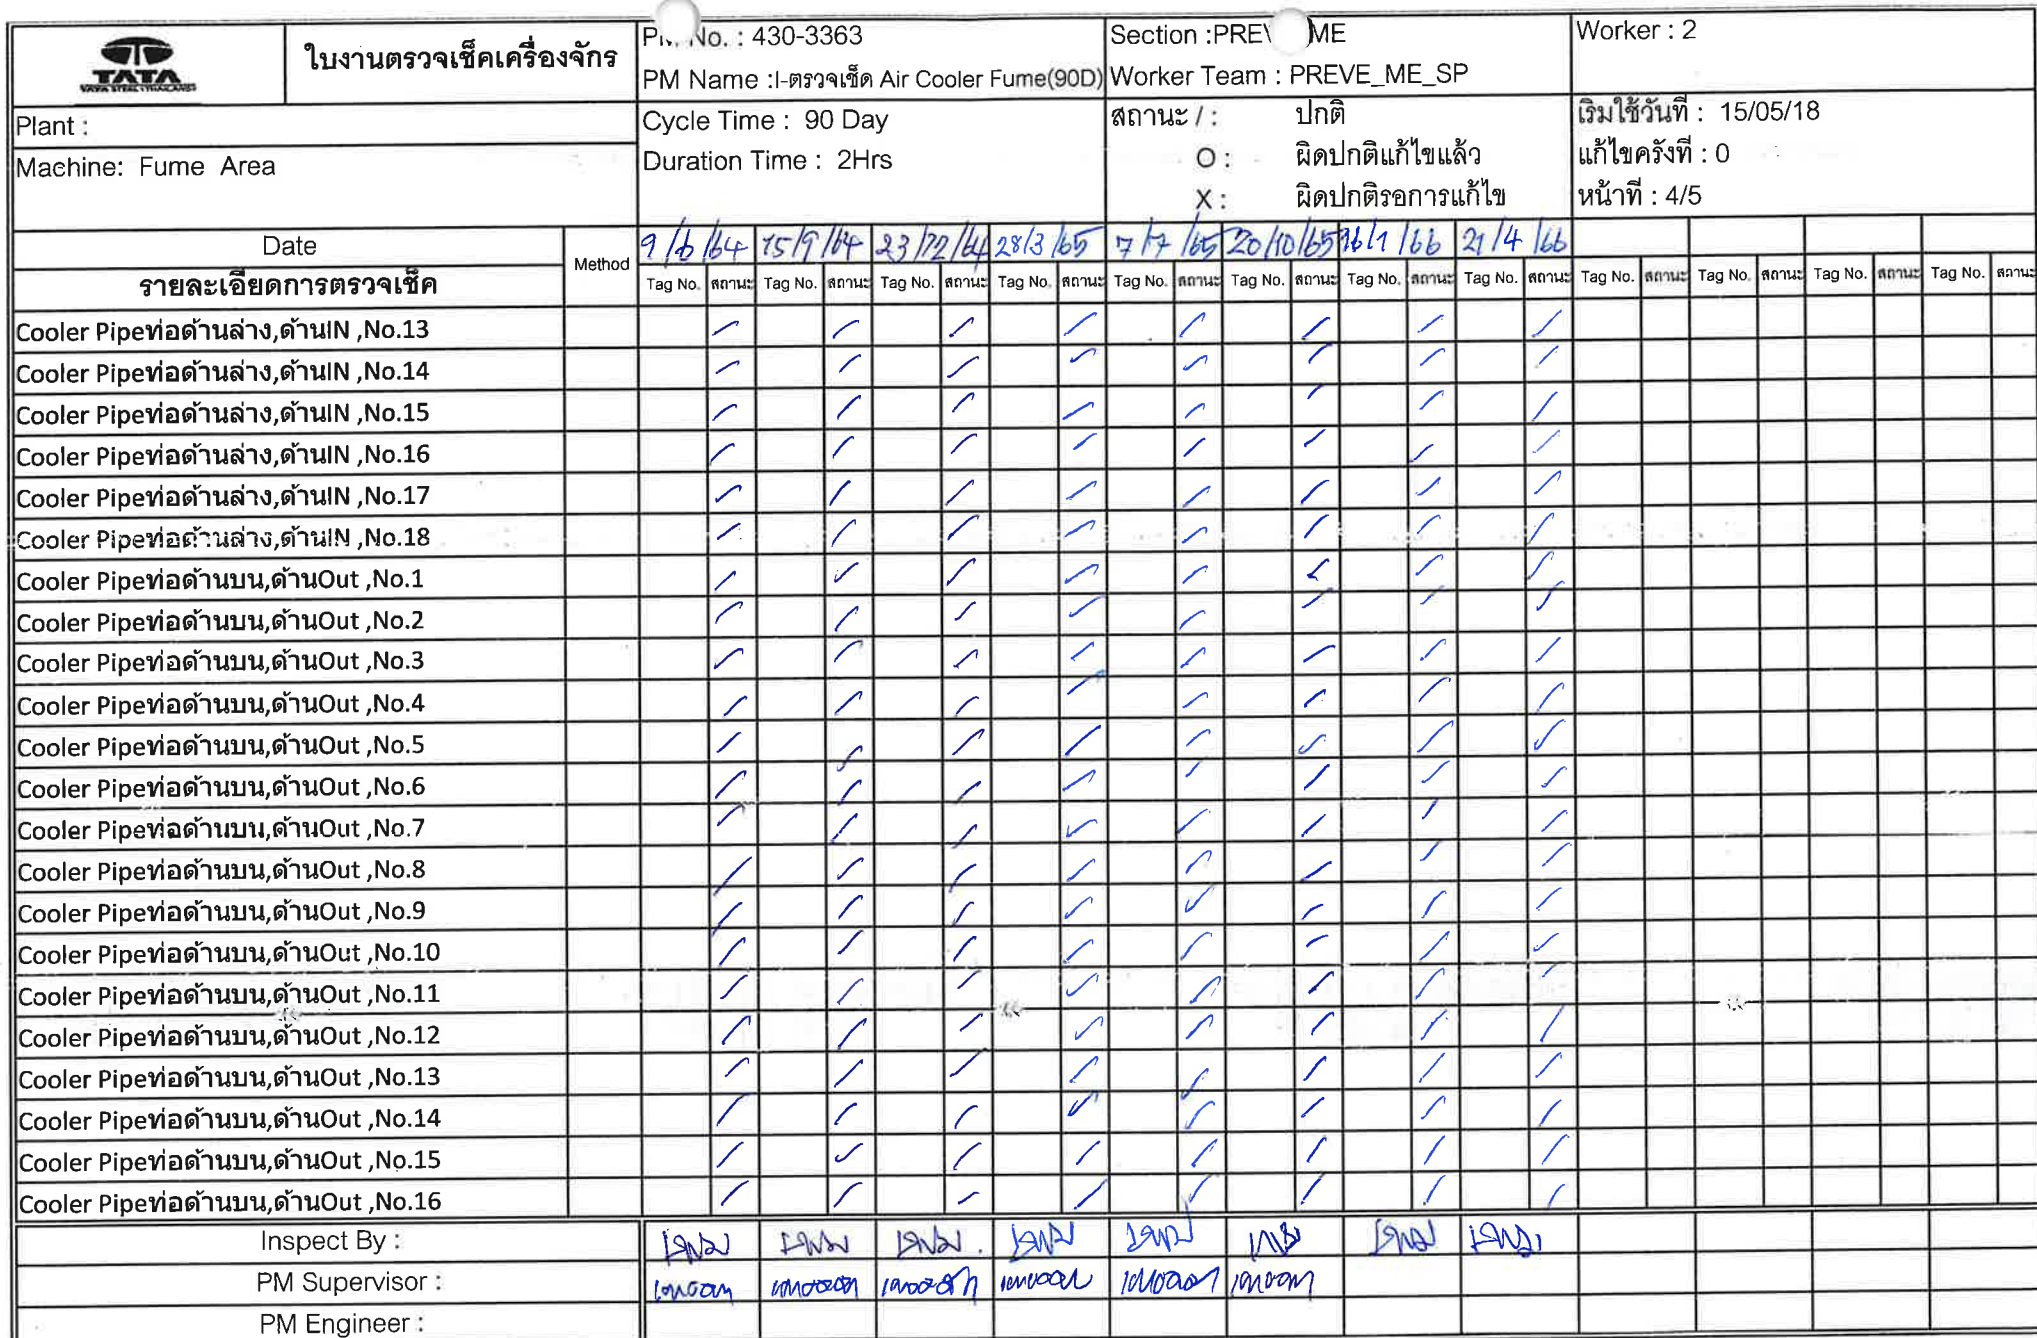 TATA
TATA STEEL (THAILAND)
ใบงานตรวจเช็คเครื่องจักร
No. : 430-3363
PM Name :I-ตรวจเช็ค Air Cooler Fume(90D)
Section :PREV ME
Worker Team : PREVE_ME_SP
Worker : 2
Plant :
Machine: Fume Area
Cycle Time : 90 Day
Duration Time : 2Hrs
สถานะ / : ปกติ
O : ผิดปกติแก้ไขแล้ว
X : ผิดปกติรอการแก้ไข
เริ่มใช้วันที่ : 15/05/18
แก้ไขครั้งที่ : 0
หน้าที่ : 4/5
Date Method 9/6/64 15/9/64 23/12/64 28/3/65 7/7/65 20/10/65 16/1/66 21/4/66
รายละเอียดการตรวจเช็ค Tag No. สถานะ Tag No. สถานะ Tag No. สถานะ Tag No. สถานะ Tag No. สถานะ Tag No. สถานะ Tag No. สถานะ Tag No. สถานะ Tag No. สถานะ Tag No. สถานะ Tag No. สถานะ Tag No. สถานะ
Cooler Pipeท่อด้านล่าง,ด้านIN ,No.13 / / / / / / / /
Cooler Pipeท่อด้านล่าง,ด้านIN ,No.14 / / / / / / / /
Cooler Pipeท่อด้านล่าง,ด้านIN ,No.15 / / / / / / / /
Cooler Pipeท่อด้านล่าง,ด้านIN ,No.16 / / / / / / / /
Cooler Pipeท่อด้านล่าง,ด้านIN ,No.17 / / / / / / / /
Cooler Pipeท่อด้านล่าง,ด้านIN ,No.18 / / / / / / / /
Cooler Pipeท่อด้านบน,ด้านOut ,No.1 / / / / / / / /
Cooler Pipeท่อด้านบน,ด้านOut ,No.2 / / / / / / / /
Cooler Pipeท่อด้านบน,ด้านOut ,No.3 / / / / / / / /
Cooler Pipeท่อด้านบน,ด้านOut ,No.4 / / / / / / / /
Cooler Pipeท่อด้านบน,ด้านOut ,No.5 / / / / / / / /
Cooler Pipeท่อด้านบน,ด้านOut ,No.6 / / / / / / / /
Cooler Pipeท่อด้านบน,ด้านOut ,No.7 / / / / / / / /
Cooler Pipeท่อด้านบน,ด้านOut ,No.8 / / / / / / / /
Cooler Pipeท่อด้านบน,ด้านOut ,No.9 / / / / / / / /
Cooler Pipeท่อด้านบน,ด้านOut ,No.10 / / / / / / / /
Cooler Pipeท่อด้านบน,ด้านOut ,No.11 / / / / / / / /
Cooler Pipeท่อด้านบน,ด้านOut ,No.12 / / / / / / / /
Cooler Pipeท่อด้านบน,ด้านOut ,No.13 / / / / / / / /
Cooler Pipeท่อด้านบน,ด้านOut ,No.14 / / / / / / / /
Cooler Pipeท่อด้านบน,ด้านOut ,No.15 / / / / / / / /
Cooler Pipeท่อด้านบน,ด้านOut ,No.16 / / / / / / / /
Inspect By :
PM Supervisor :
PM Engineer :